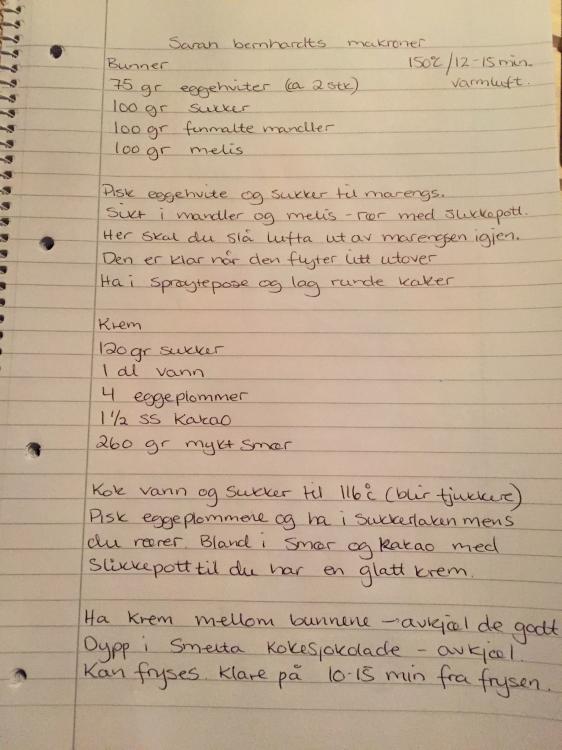 Sarah bernhardts makroner
Bunner 150°C/12-15 min.
75 gr eggehviter (ca 2 stk) varmluft.
100 gr sukker
100 gr finmalte mandler
100 gr melis
Pisk eggehvite og sukker til marengs.
Sikt i mandler og melis - rør med slikkepott.
Her skal du slå lufta ut av marengsen igjen.
Den er klar når den flyter litt utover
Ha i sprøytepose og lag runde kaker
Krem
120 gr sukker
1 dl vann
4 eggeplommer
1 1/2 ss kakao
260 gr mykt smør
Kok vann og sukker til 116°c (blir tjukkere)
Pisk eggeplommene og ha i sukkerlaken mens
du rører. Bland i smør og kakao med
slikkepott til du har en glatt krem.
Ha krem mellom bunnene - avkjøl de godt
Dypp i smelta kokesjokolade - avkjøl.
Kan fryses. Klare på 10-15 min fra frysen.